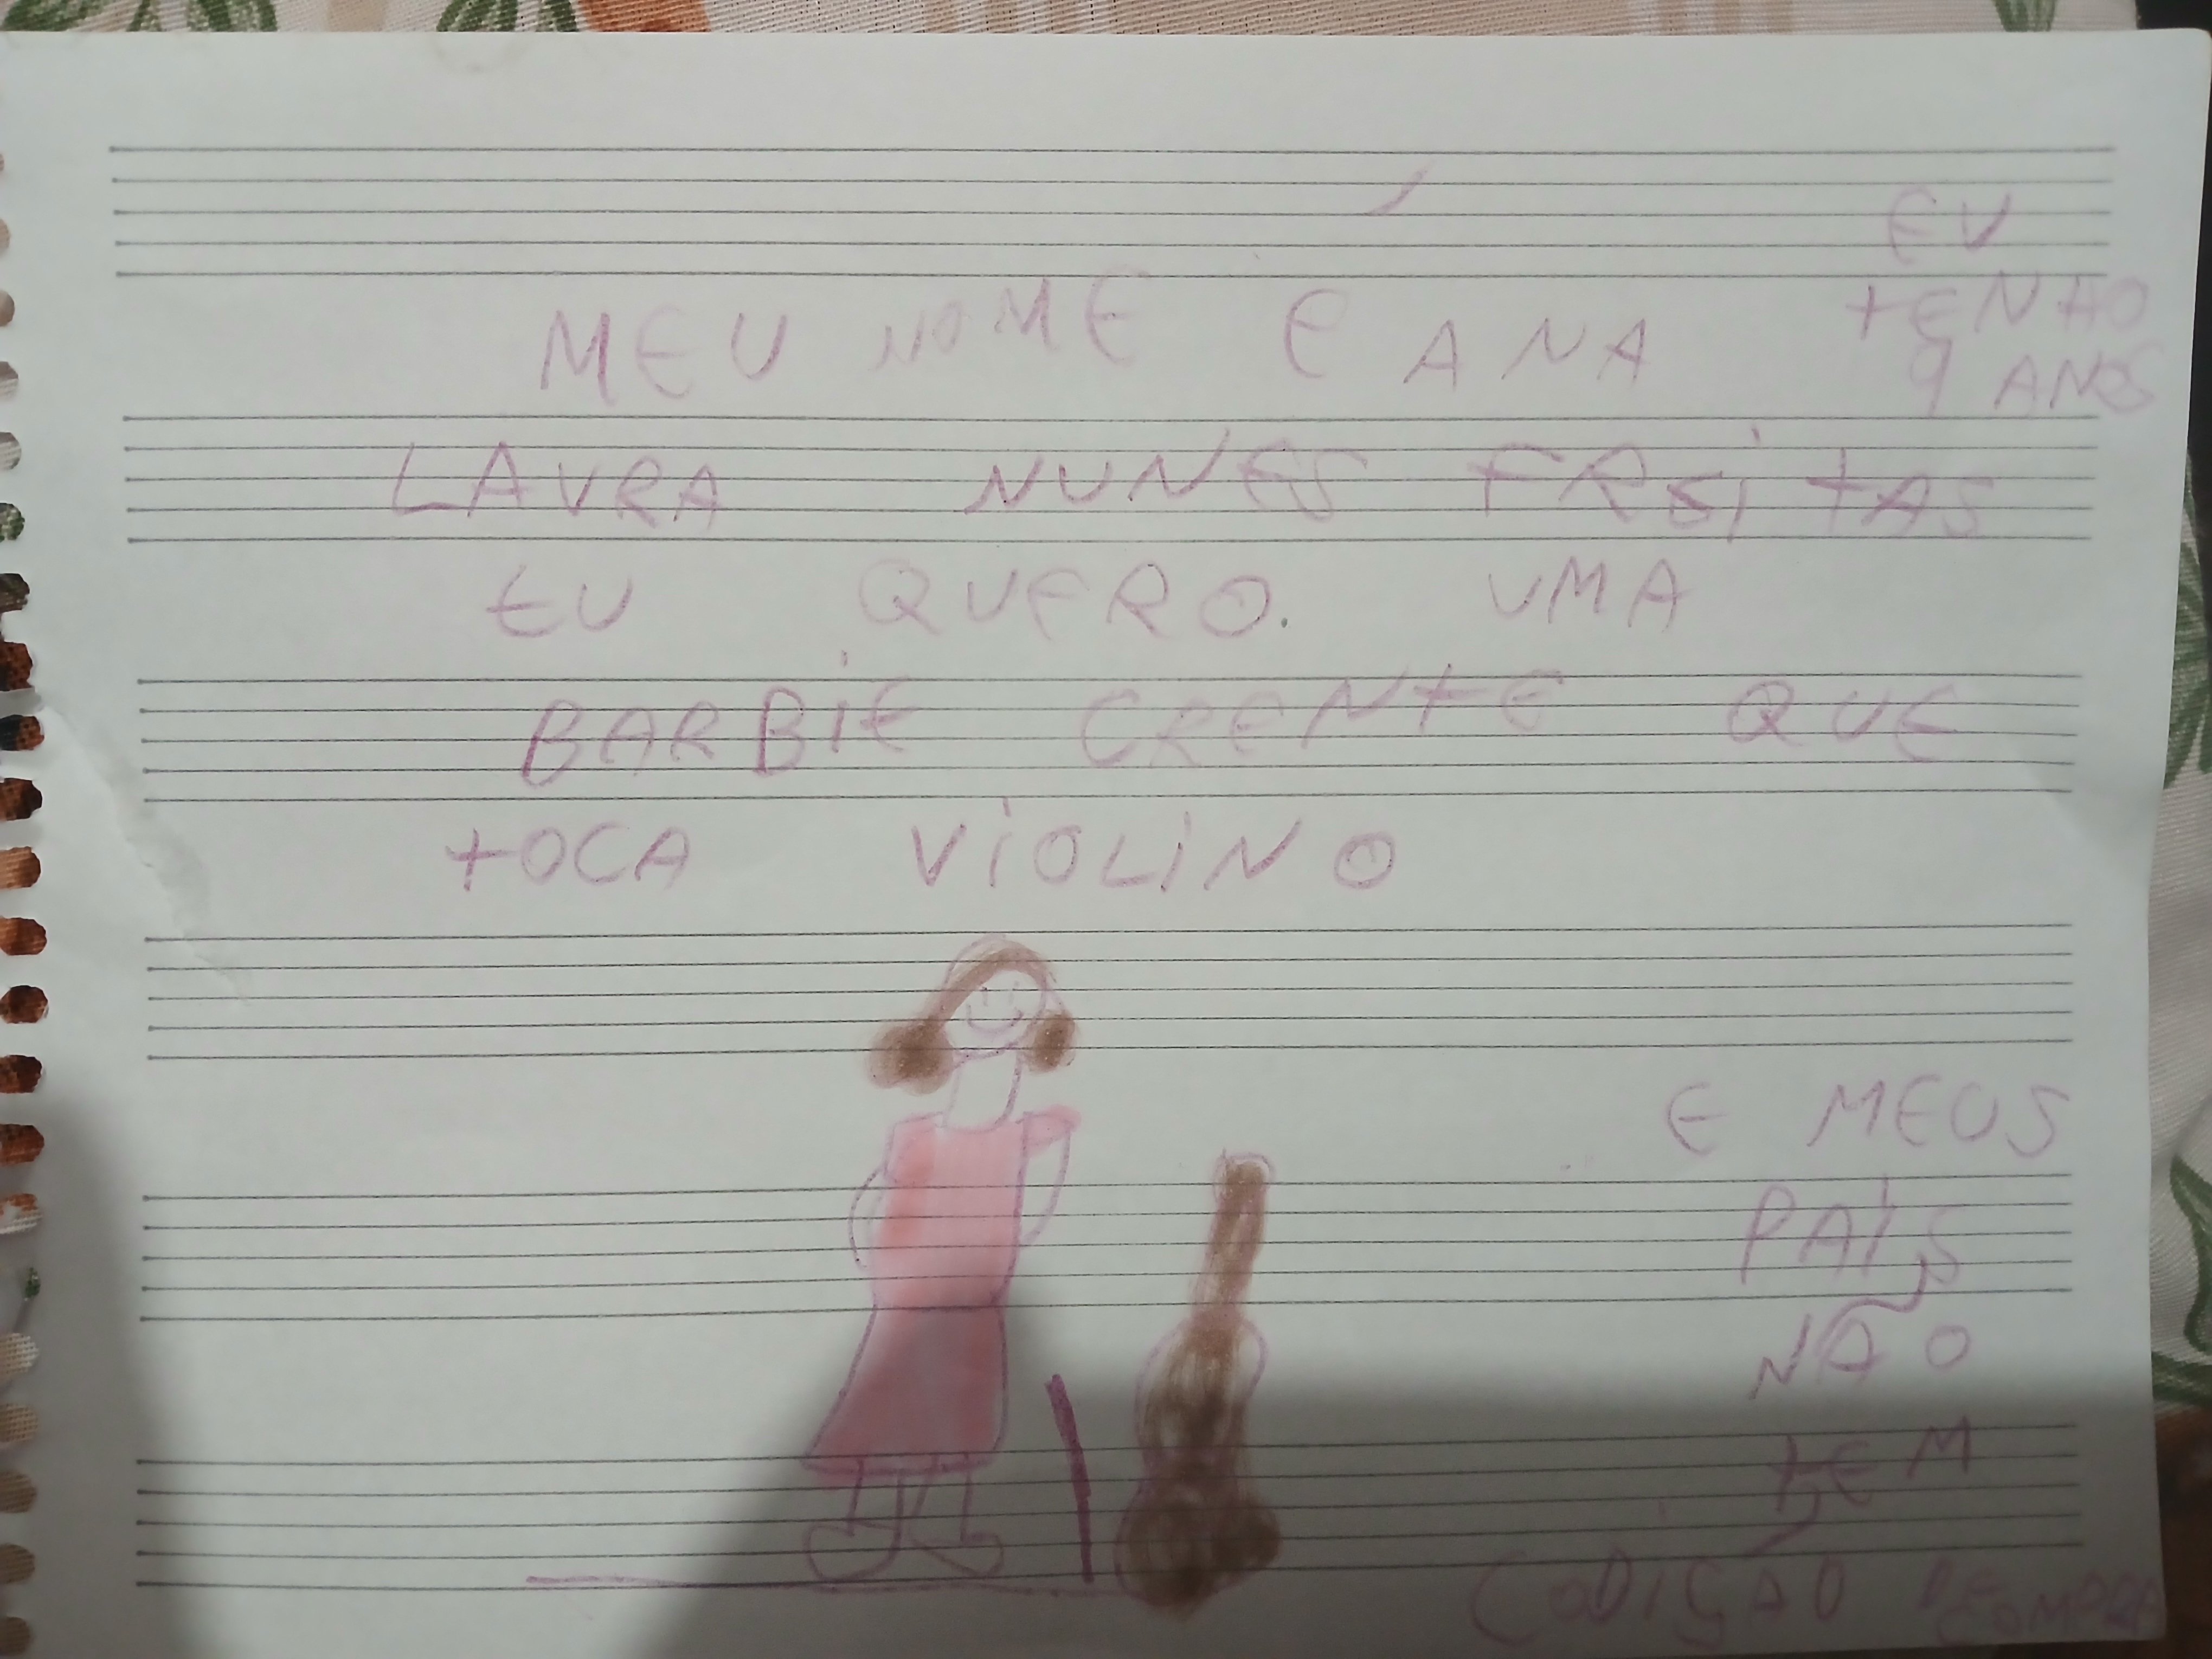 MEU NOME É ANA
LAURA NUNES FREITAS
EU QUERO. UMA
BARBIE CRENTE QUE
TOCA VIOLINO
EU
TENHO
9 ANOS
E MEUS
PAIS
NÃO
TEM
CODIÇÃO DE COMPRA